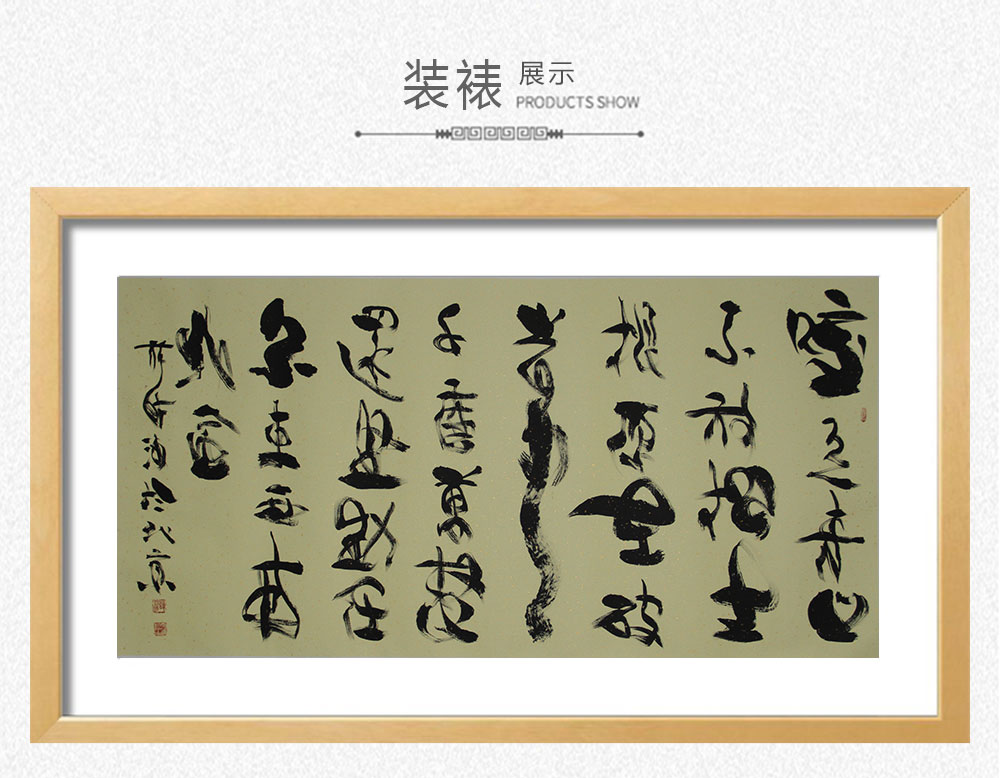 装裱 展示
PRODUCTS SHOW
咬定青山
不放松立
根原在破
岩中
千磨萬擊
還堅勁任
尔東西南
北風
於北京